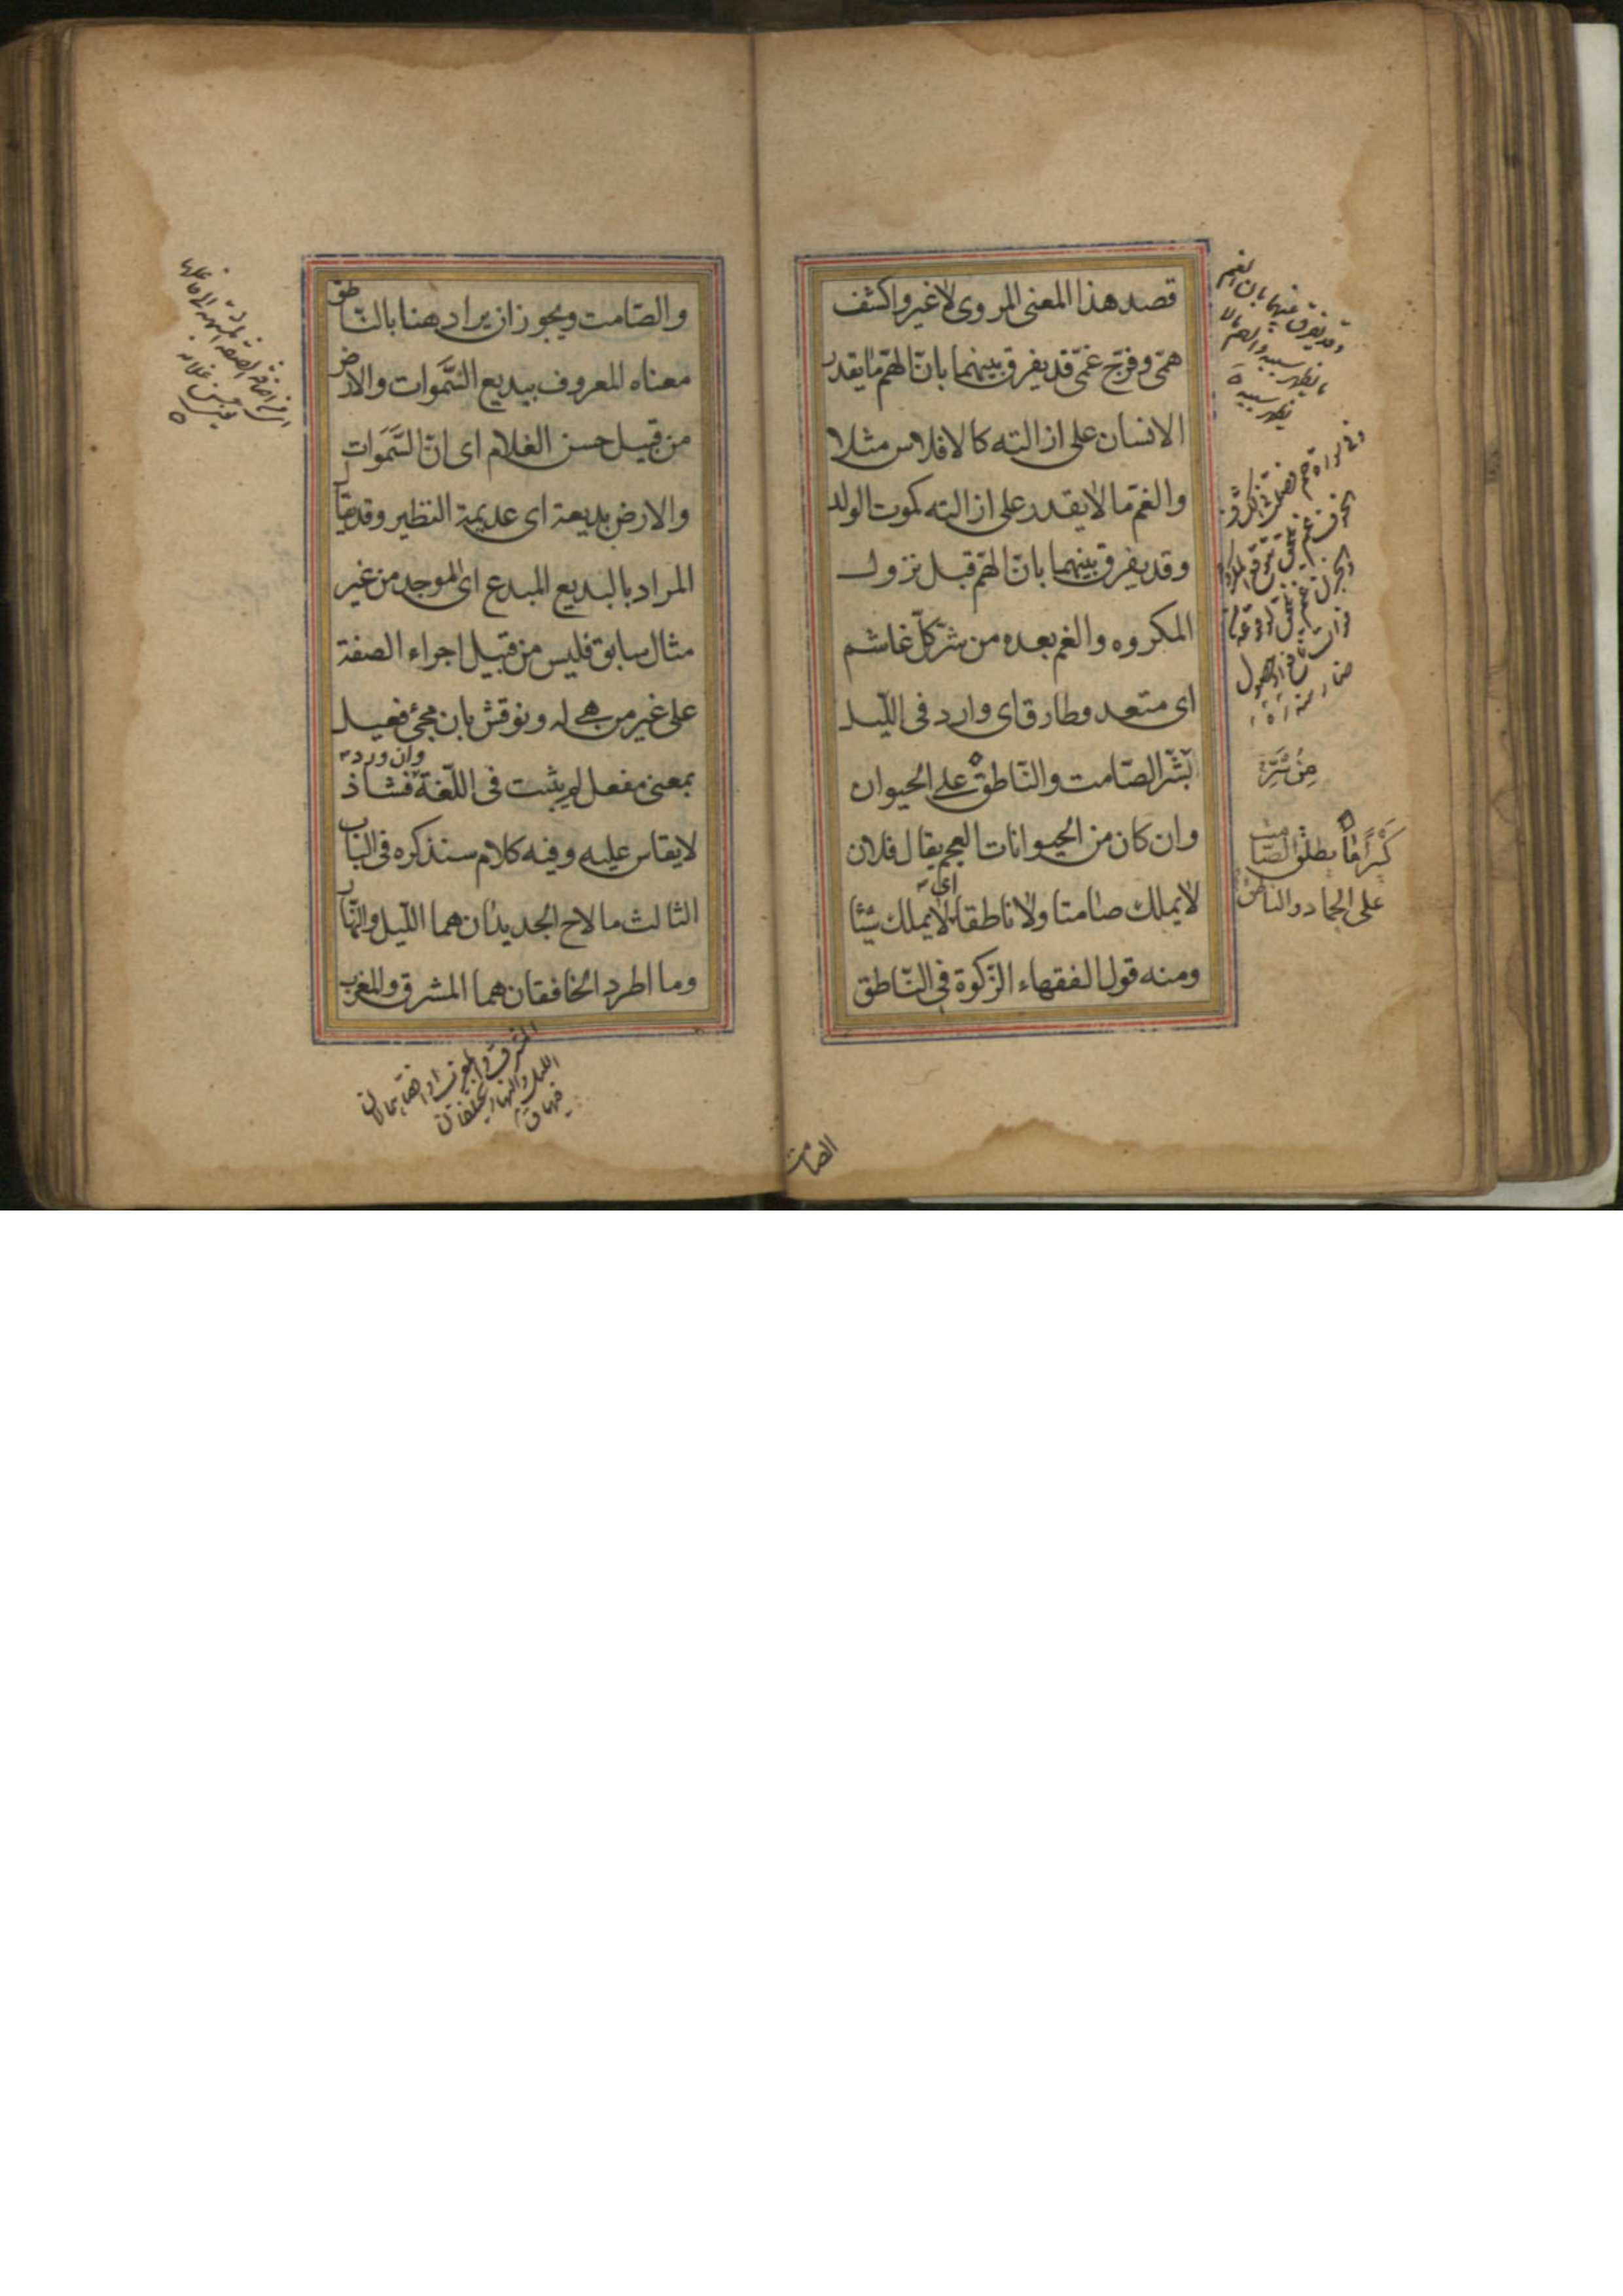 قصد هذا المعنى المروى لا غير واكشف
همّى وفرّج غمّى قد يفرق بينهما بانّ الهمّ ما يقدر
الانسان على ازالته كالافلاس مثلا
والغمّ ما لا يقدر على ازالته كموت الولد
وقد يفرق بينهما بانّ الهمّ قبل نزول
المكروه والغم بعده من شرّ كلّ غاشم
اى متعد وطارق اى وارد فى اللّيل
بشّر الصّامت والنّاطق على الحيوان
وان كان من الحيوانات العجم يقال فلان
لا يملك صامتا ولا ناطقا اى لا يملك شيئا
ومنه قول الفقهاء الزّكوة فى النّاطق
وقد يفرق بينهما بان الغم
ما يظهر سببه والهم ما لا
يظهر سببه
مِنْ شَرِّ
كثيرًا ما يطلق الصّامت
على الجماد والناطق
الصامت
والصّامت ويجوز ان يراد هنا بالنّاطق
معناه المعروف بديع السَّموات والارض
من قبيل حسن الغلام اى انّ السَّمَوات
والارض بديعة اى عديمة النظير وقد يقا
المراد بالبديع المبدع اى الموجد من غير
مثال سابق فليس من قبيل اجراء الصفة
على غير من هى له ونوقش بان مجئ فعيل
بمعنى مفعل لم يثبت فى اللّغة وان ورد فشاذ
لا يقاس عليه وفيه كلام سنذكره فى الباب
الثالث ما لاح الجديدان هما اللّيل والنّهار
وما اطرد الخافقان هما المشرق والمغرب
المشرق والمغرب
الليل والنهار يختفقان
فيهما ق